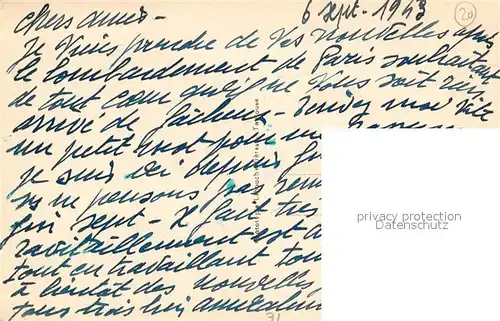 6 sept - 1943
20
Chers amis -
Je viens prendre de vos nouvelles après
le bombardement de Paris souhaitant
de tout cœur qu'il ne vous soit rien
arrivé de fâcheux - Rendez moi vite
un petit mot pour me
je suis ici depuis
ns ne pensons pas
fin sept - Il fait très
ravitaillement est
tout en travaillant
à bientôt des nouvelles
tous trois bien amicalement
31
privacy protection
Datenschutz